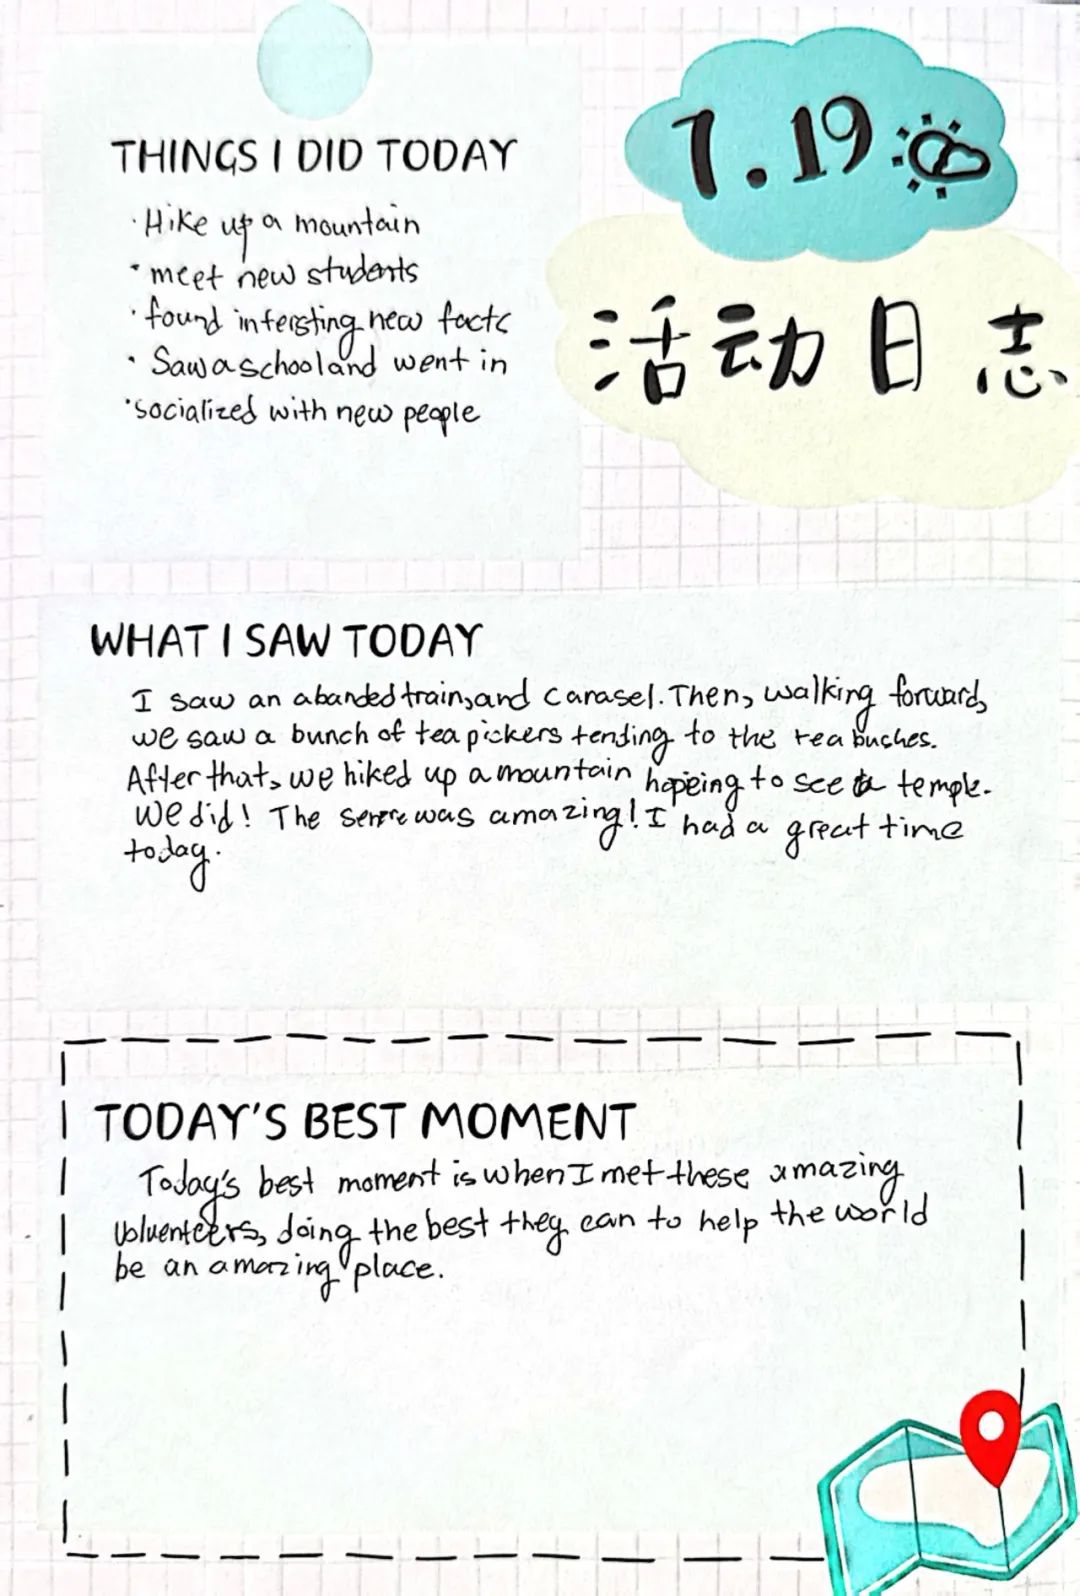 7.19
活动日志
THINGS I DID TODAY
· Hike up a mountain
· meet new students
· found intersting new facts
· Saw a school and went in
· socialized with new people
WHAT I SAW TODAY
I saw an abanded train, and carasel. Then, walking forward,
we saw a bunch of tea pickers tending to the tea bushes.
After that, we hiked up a mountain hopeing to see a temple.
We did! The was amazing! I had a great time
today.
TODAY'S BEST MOMENT
Today's best moment is when I met these amazing
volunteers, doing the best they can to help the world
be an amazing place.